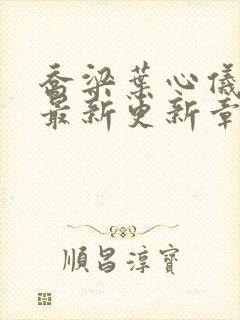 乔梁葉心儀
最新更新章
順昌淳寶